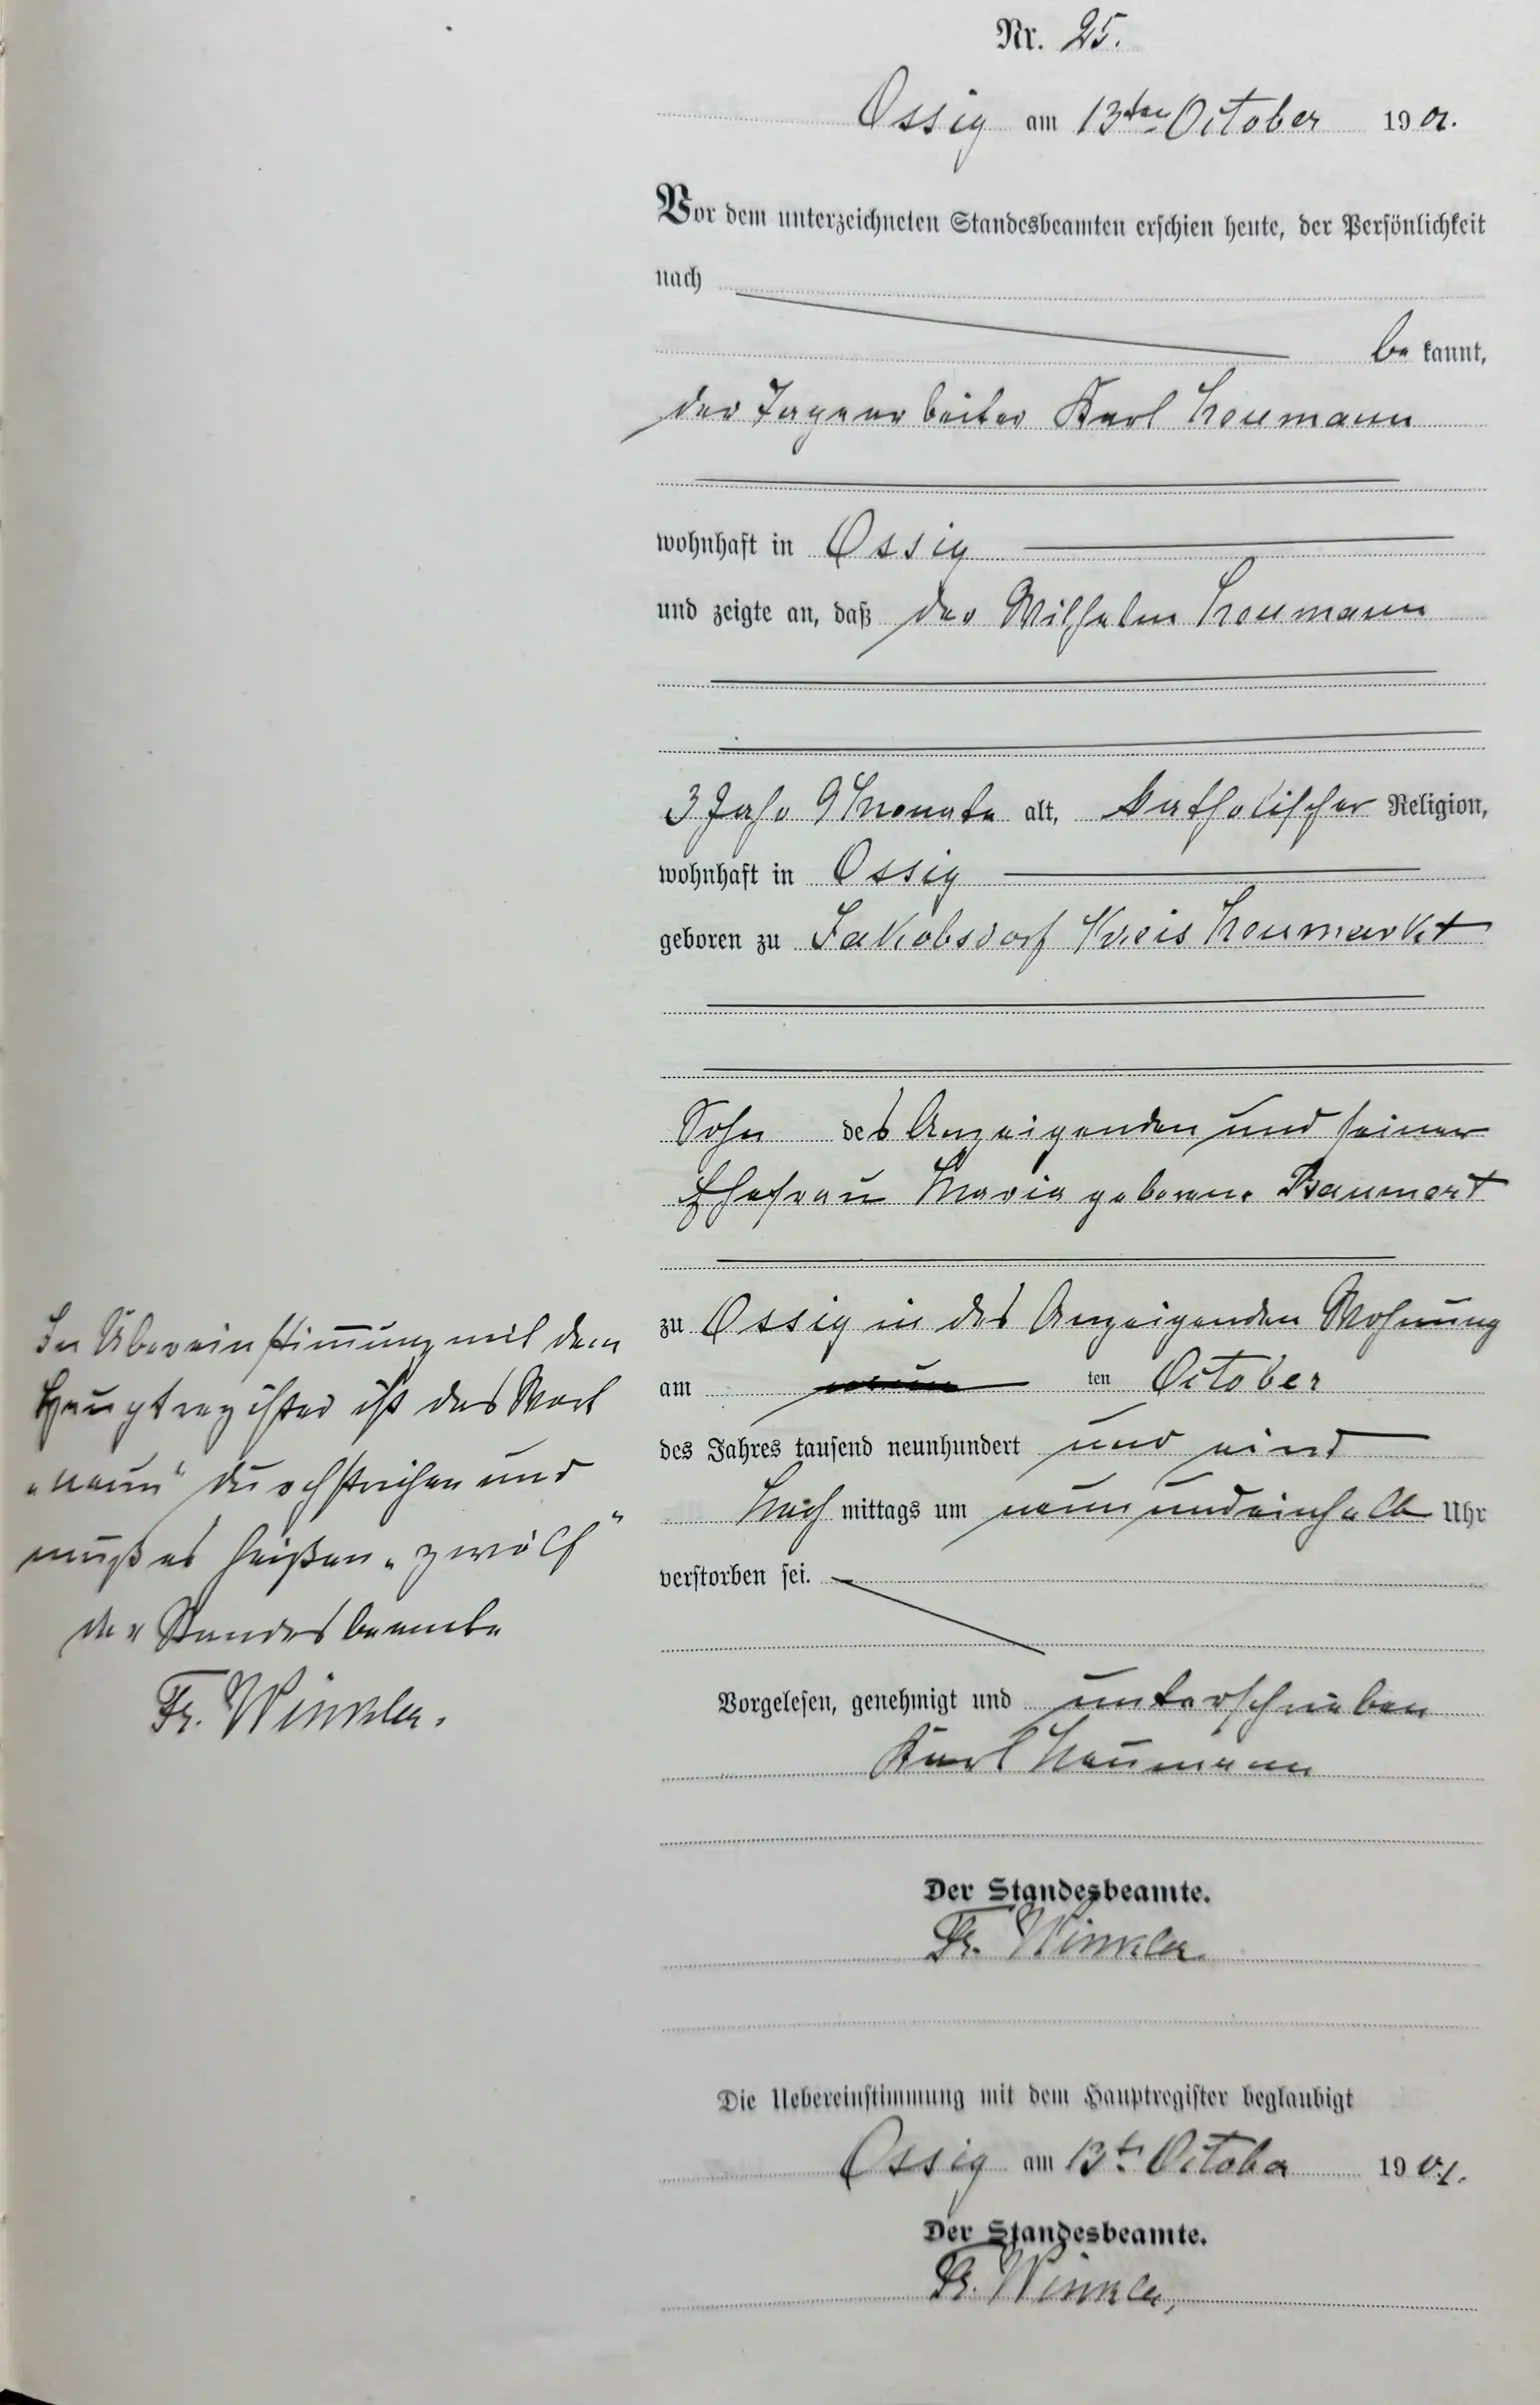 Nr. 25.
Ossig am 13ten October 1901.
Vor dem unterzeichneten Standesbeamten erschien heute, der Persönlichkeit
nach
be kannt,
der Tagearbeiter Karl Neumann
wohnhaft in Ossig
und zeigte an, daß der Wilhelm Neumann
3 Jahr 9 Monate alt, katholischer Religion,
wohnhaft in Ossig
geboren zu Jakobsdorf Kreis Neumarkt
Sohn des Anzeigenden und seiner
Ehefrau Maria geborene Baumert
zu Ossig in des Anzeigenden Wohnung
am neun ten October
des Jahres tausend neunhundert und eins
Nach mittags um neun undeinhalb Uhr
verstorben sei.
Vorgelesen, genehmigt und unterschrieben
Karl Neumann
Der Standesbeamte.
Fr. Winkler.
Die Uebereinstimmung mit dem Hauptregister beglaubigt
Ossig am 13t October 1901.
Der Standesbeamte.
Fr. Winkler,
In Übereinstimmung mit dem
Hauptregister ist das Wort
„neun“ durchstrichen und
muß es heißen „zwölf“
der Standesbeamte
Fr. Winkler.